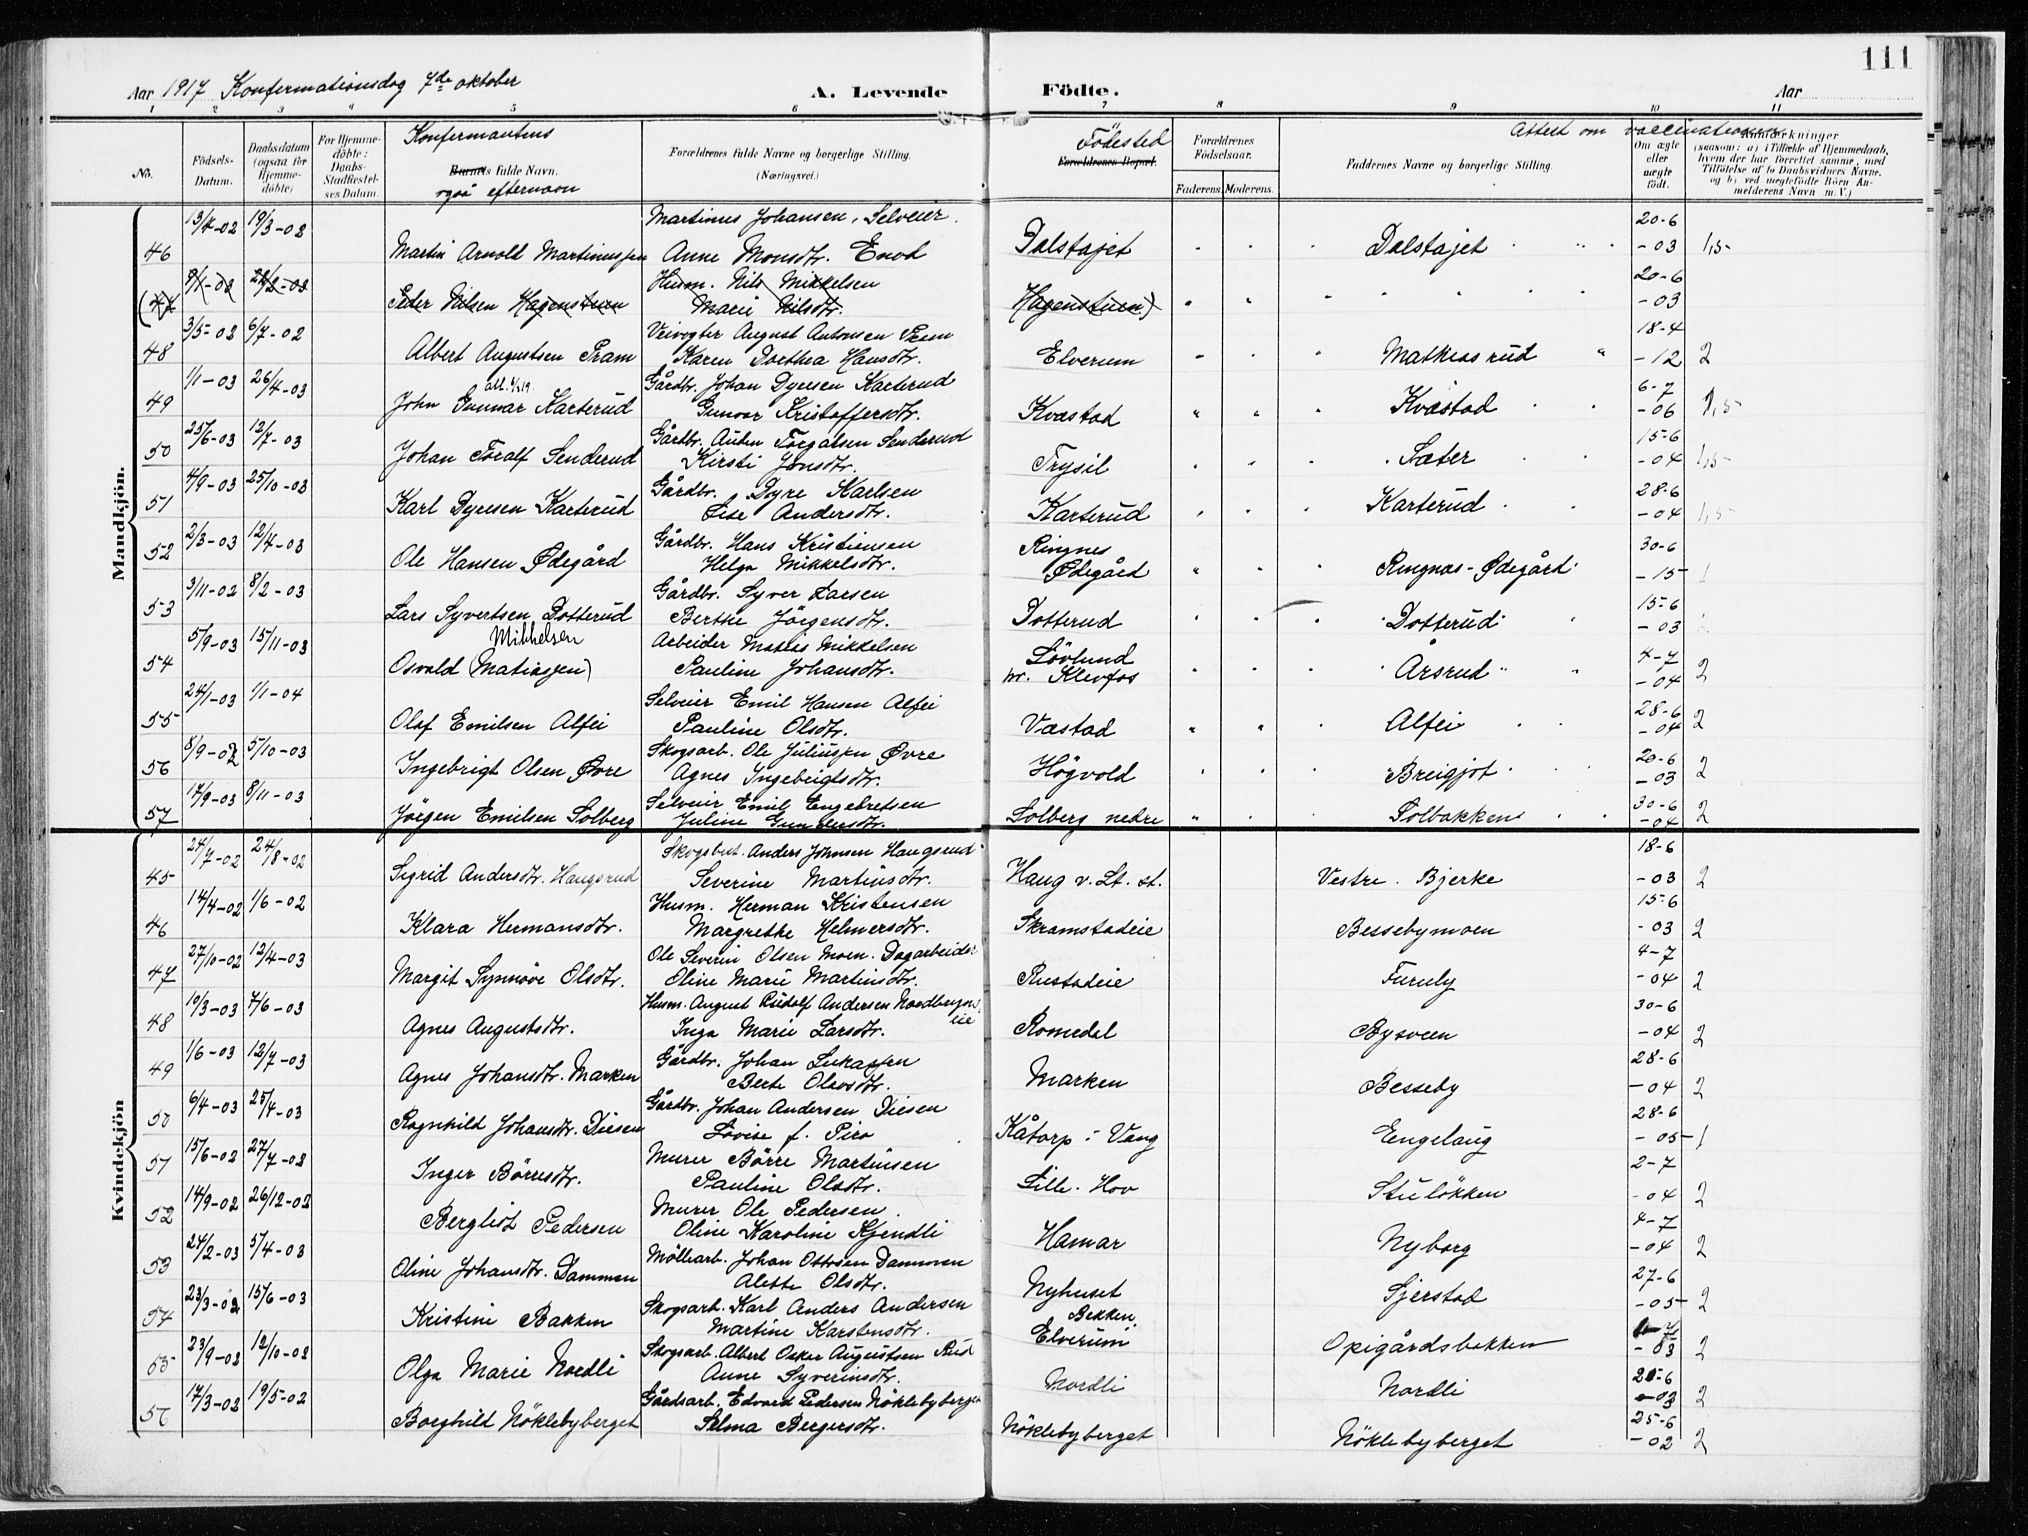 111
Aar 1917 Konfermationsdag 7de oktober
A. Levende Födte.
Aar
1 2 3 " 5 6 7 8 9 10 11
No.
Födsels-Datum.
Daabsdatum (ogsaa for Hjemmedöbte)
For Hjemmedöbte: Daabs-Stadfæstelses Datum.
Konfermantens
Barnets fulde Navn.
også efternavn
Forældrenes fulde Navne og borgerlige Stilling.
(Næringsvei.)
Födested
Forældrenes Bopæl.
Forældrenes Födselsaar.
Faderens. Moderens.
Faddernes Navne og borgerlige Stilling.
Attest om vaccinationen
Om ægte eller uægte födt.
Anmærkninger
(saasom: a) i Tilfælde af Hjemmedaab, hvem der har forrettet samme, med Tilföielse af to Daabsvidners Navne, og b) ved uægtefödte Börn Anmelderens Navn m. V.)
Mandkjön.
46 13/4-02 19/3-02 Martin Arnold Martinussen Martinus Johansen, Selveier. Anne Monsdtr. Enod Dalstajet Dalstajet 20-6 -03 1,5
(47 Peder Nilsen Hagenstuen Husm. Nils Mikkelsen Marie Nilsdtr. Hagenstuen) 20-6 -03
48 3/5-02 6/7-02 Albert Augustsen Pram Veivogter August Antonsen Pram Karen Dorthea Hansdtr. Elverum Mathiasrud 18-4 -12 2
49 1/1-03 26/4-03 John Gunnar Karterud Gårdbr. Johan Dyresen Karterud Gunvor Kristoffersdtr. Kvastad Kvastad 6-7 -06 1,5
50 25/6-03 12/7-03 Johan Toralf Senderud Gårdbr. Auten Torgalsen Senderud Kirsti Jonsdtr. Trysil Sæter 15-6 -04 1,5
51 4/9-03 25/10-03 Karl Dyresen Karterud Gårdbr. Dyre Karlsen Lise Andersdtr. Karterud Karterud 28-6 -04 1,5
52 2/3-03 12/4-03 Ole Hansen Ødegård Gårdbr. Hans Kristiansen Helga Mikkelsdtr. Ringnes Ødegård Ringnæs-Ødegård 30-6 -15 1
53 3/11-02 8/2-03 Lars Syvertsen Dotterud Gårdbr. Syver Larsen Berthe Jörgensdtr. Dotterud Dotterud 15-6 -03
54 5/9-03 15/11-03 Osvald (Matiassen) Mikkelsen Arbeider Matias Mikkelsen Pauline Johansdtr. Lövlund nr. Klevfos Årsrud 4-7 -04 2
55 24/1-03 1/1-04 Olaf Emilsen Alfei Selveier Emil Hansen Alfei Pauline Olsdtr. Vastad Alfei 28-6 -04 2
56 8/9-02 5/10-03 Ingebrigt Olsen Øvre Skogsarb. Ole Juliussen Øvre Agnes Ingebrigtsdtr. Högvold Breigjot 20-6 -03 2
57 17/9-03 8/11-03 Jörgen Emilsen Solberg Selveier Emil Engebretsen Juline Gundersdtr. Solberg nedre Solbakken 30-6 -04 2
Kvindekjön
45 24/7-02 24/8-02 Sigrid Andersdtr. Haugsrud Skogsbest. Anders Johnsen Haugsrud Severine Martinsdtr. Haug v. Lt. st. Vestre. Bjerke 18-6 -03 2
46 14/4-02 1/6-02 Klara Hermansdtr. Husm. Herman Kristensen Margrethe Helmersdtr. Skramstadeie Bessebymoen 15-6 -03 2
47 27/10-02 12/4-03 Margit Synnöve Olsdtr. Ole Severin Olsen Moen. Dagarbeider Oline Marie Martinsdtr. Rustadeie Furuly 4-7 -04 2
48 10/3-03 7/6-03 Agnes Augustsdtr. Husm. August Rudolf Andersen Nordbergseie Inga Marie Larsdtr. Romedal Bysveen 30-6 -04 2
49 1/6-03 12/7-03 Agnes Johansdtr. Marken Gårdbr. Johan Lukassen Berte Olavsdtr. Marken Besseby 28-6 -04 2
50 6/4-03 25/4-03 Ragnhild Johansdtr. Diesen Gårdbr. Johan Andersen Diesen Lovise f. Piro Kåtorp i Vang Engelaug 28-6 -05 1
51 15/6-02 27/7-02 Inger Börresdtr. Murer Börre Martinsen Pauline Olsdtr. Lille-Hov Stulökken 2-7 -04 2
52 14/9-02 26/12-02 Bergliot Pedersen Murer Ole Pedersen. Oline Karoline Kjendli Hamar Nyborg 4-7 -04 2
53 24/2-03 5/4-03 Oline Johansdtr. Dammen Möllearb. Johan Ottosen Dammen Alette Olsdtr. Nyhuset Sjerstad 27-6 -05 2
54 23/3-02 15/6-03 Kristine Bakken Skogsarb. Karl Anders Andersen Martine Karstensdtr. Bekken. Elverum Opigårdsbakken -03 2
55 23/9-02 12/10-02 Olga Marie Nordli Skogsarb. Albert Oskar Augustsen Rud Anne Syverinsdtr. Nordli Nordli 25-6 -03 2
56 17/3-02 19/5-02 Borghild Nöklebyberget Gårdsarb. Edvard Pedersen Nöklebyberget Selma Bergersdtr. Nöklebyberget Nöklebyberget 25-6 -02 2